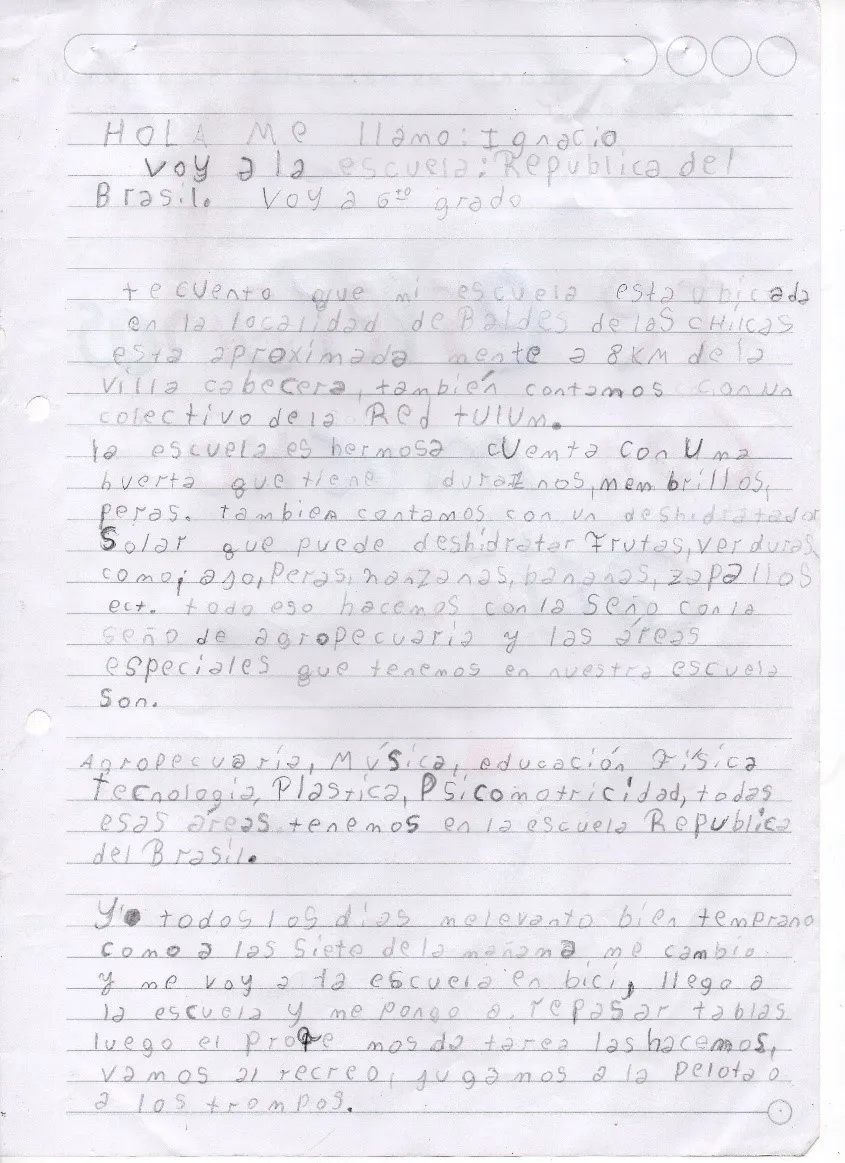 HOLA Me llamo: Ignacio
voy a la escuela: Republica del
Brasil. Voy a 6to grado
te cuento que mi escuela esta ubicada
en la localidad de Baldes de las CHilcas
esta aproximada mente a 8KM de la
villa cabecera, también contamos con un
colectivo de la Red tulum.
la escuela es hermosa cuenta con una
huerta que tiene duraznos, membrillos,
peras. tambien contamos con un deshidratador
Solar que puede deshidratar Frutas, verduras,
como; ajo, Peras, manzanas, bananas, zapallos
ect. todo eso hacemos con la Seño con la
seño de agropecuaria y las áreas
especiales que tenemos en nuestra escuela
Son.
Agropecuaría, Música, educación Física
Tecnologia, Plastica, Psicomotricidad, todas
esas áreas tenemos en la escuela Republica
del Brasil.
Yo todos los días melevanto bien temprano
como a las Siete de la mañana, me cambio
y me voy a la escuela en bici, llego a
la escuela y me pongo a repasar tablas
luego el Profe mos da tarea las hacemos,
vamos al recreo, jugamos a la Pelota o
a los trompos.